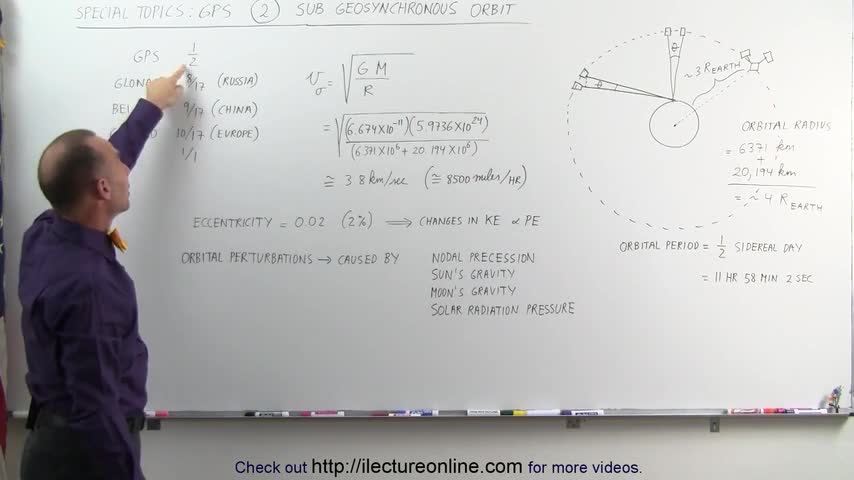 SPECIAL TOPICS: GPS ② SUB GEOSYNCHRONOUS ORBIT
GPS 1/2
8/17 (RUSSIA)
9/17 (CHINA)
10/17 (EUROPE)
1/1
v₀ = √(G M / R)
= √((6.674×10⁻¹¹)(5.9736×10²⁴) / (6.371×10⁶ + 20.194×10⁶))
≅ 3.8 km/sec (≅ 8500 miles/HR)
ECCENTRICITY = 0.02 (2%) ⟹ CHANGES IN KE ∝ PE
ORBITAL PERTURBATIONS → CAUSED BY NODAL PRECESSION
SUN'S GRAVITY
MOON'S GRAVITY
SOLAR RADIATION PRESSURE
θ
θ
~3 R EARTH
ORBITAL RADIUS
= 6371 km
+
20,194 km
= ~ 4 R EARTH
ORBITAL PERIOD = 1/2 SIDEREAL DAY
= 11 HR 58 MIN 2 SEC
Check out http://ilectureonline.com for more videos.